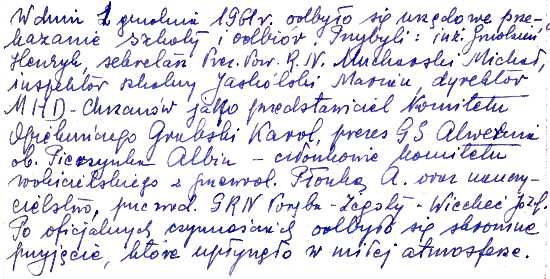 W dniu 2 grudnia 1961 r. odbyło się urzędowe prze-
kazanie szkoły i odbiór. Przybyli: inż. Gmoliński
Henryk, sekretarz Prez. Pow. R.N. Mucharski Michał,
inspektor szkolny Jaskólski Marian, dyrektor
MHD - Chrzanów jako przedstawiciel Komitetu
Opiekuńczego Grabski Karol, prezes GS Alwernia
ob. Pieczynka Albin - członkowie komitetu
rodzicielskiego z przewod. Płonką A. oraz nauczy-
cielstwo, przewod. GRN Poręba - Żegoty - Wiecheć Józef.
Po oficjalnych czynnościach odbyło się skromne
przyjęcie, które upłynęło w miłej atmosferze.